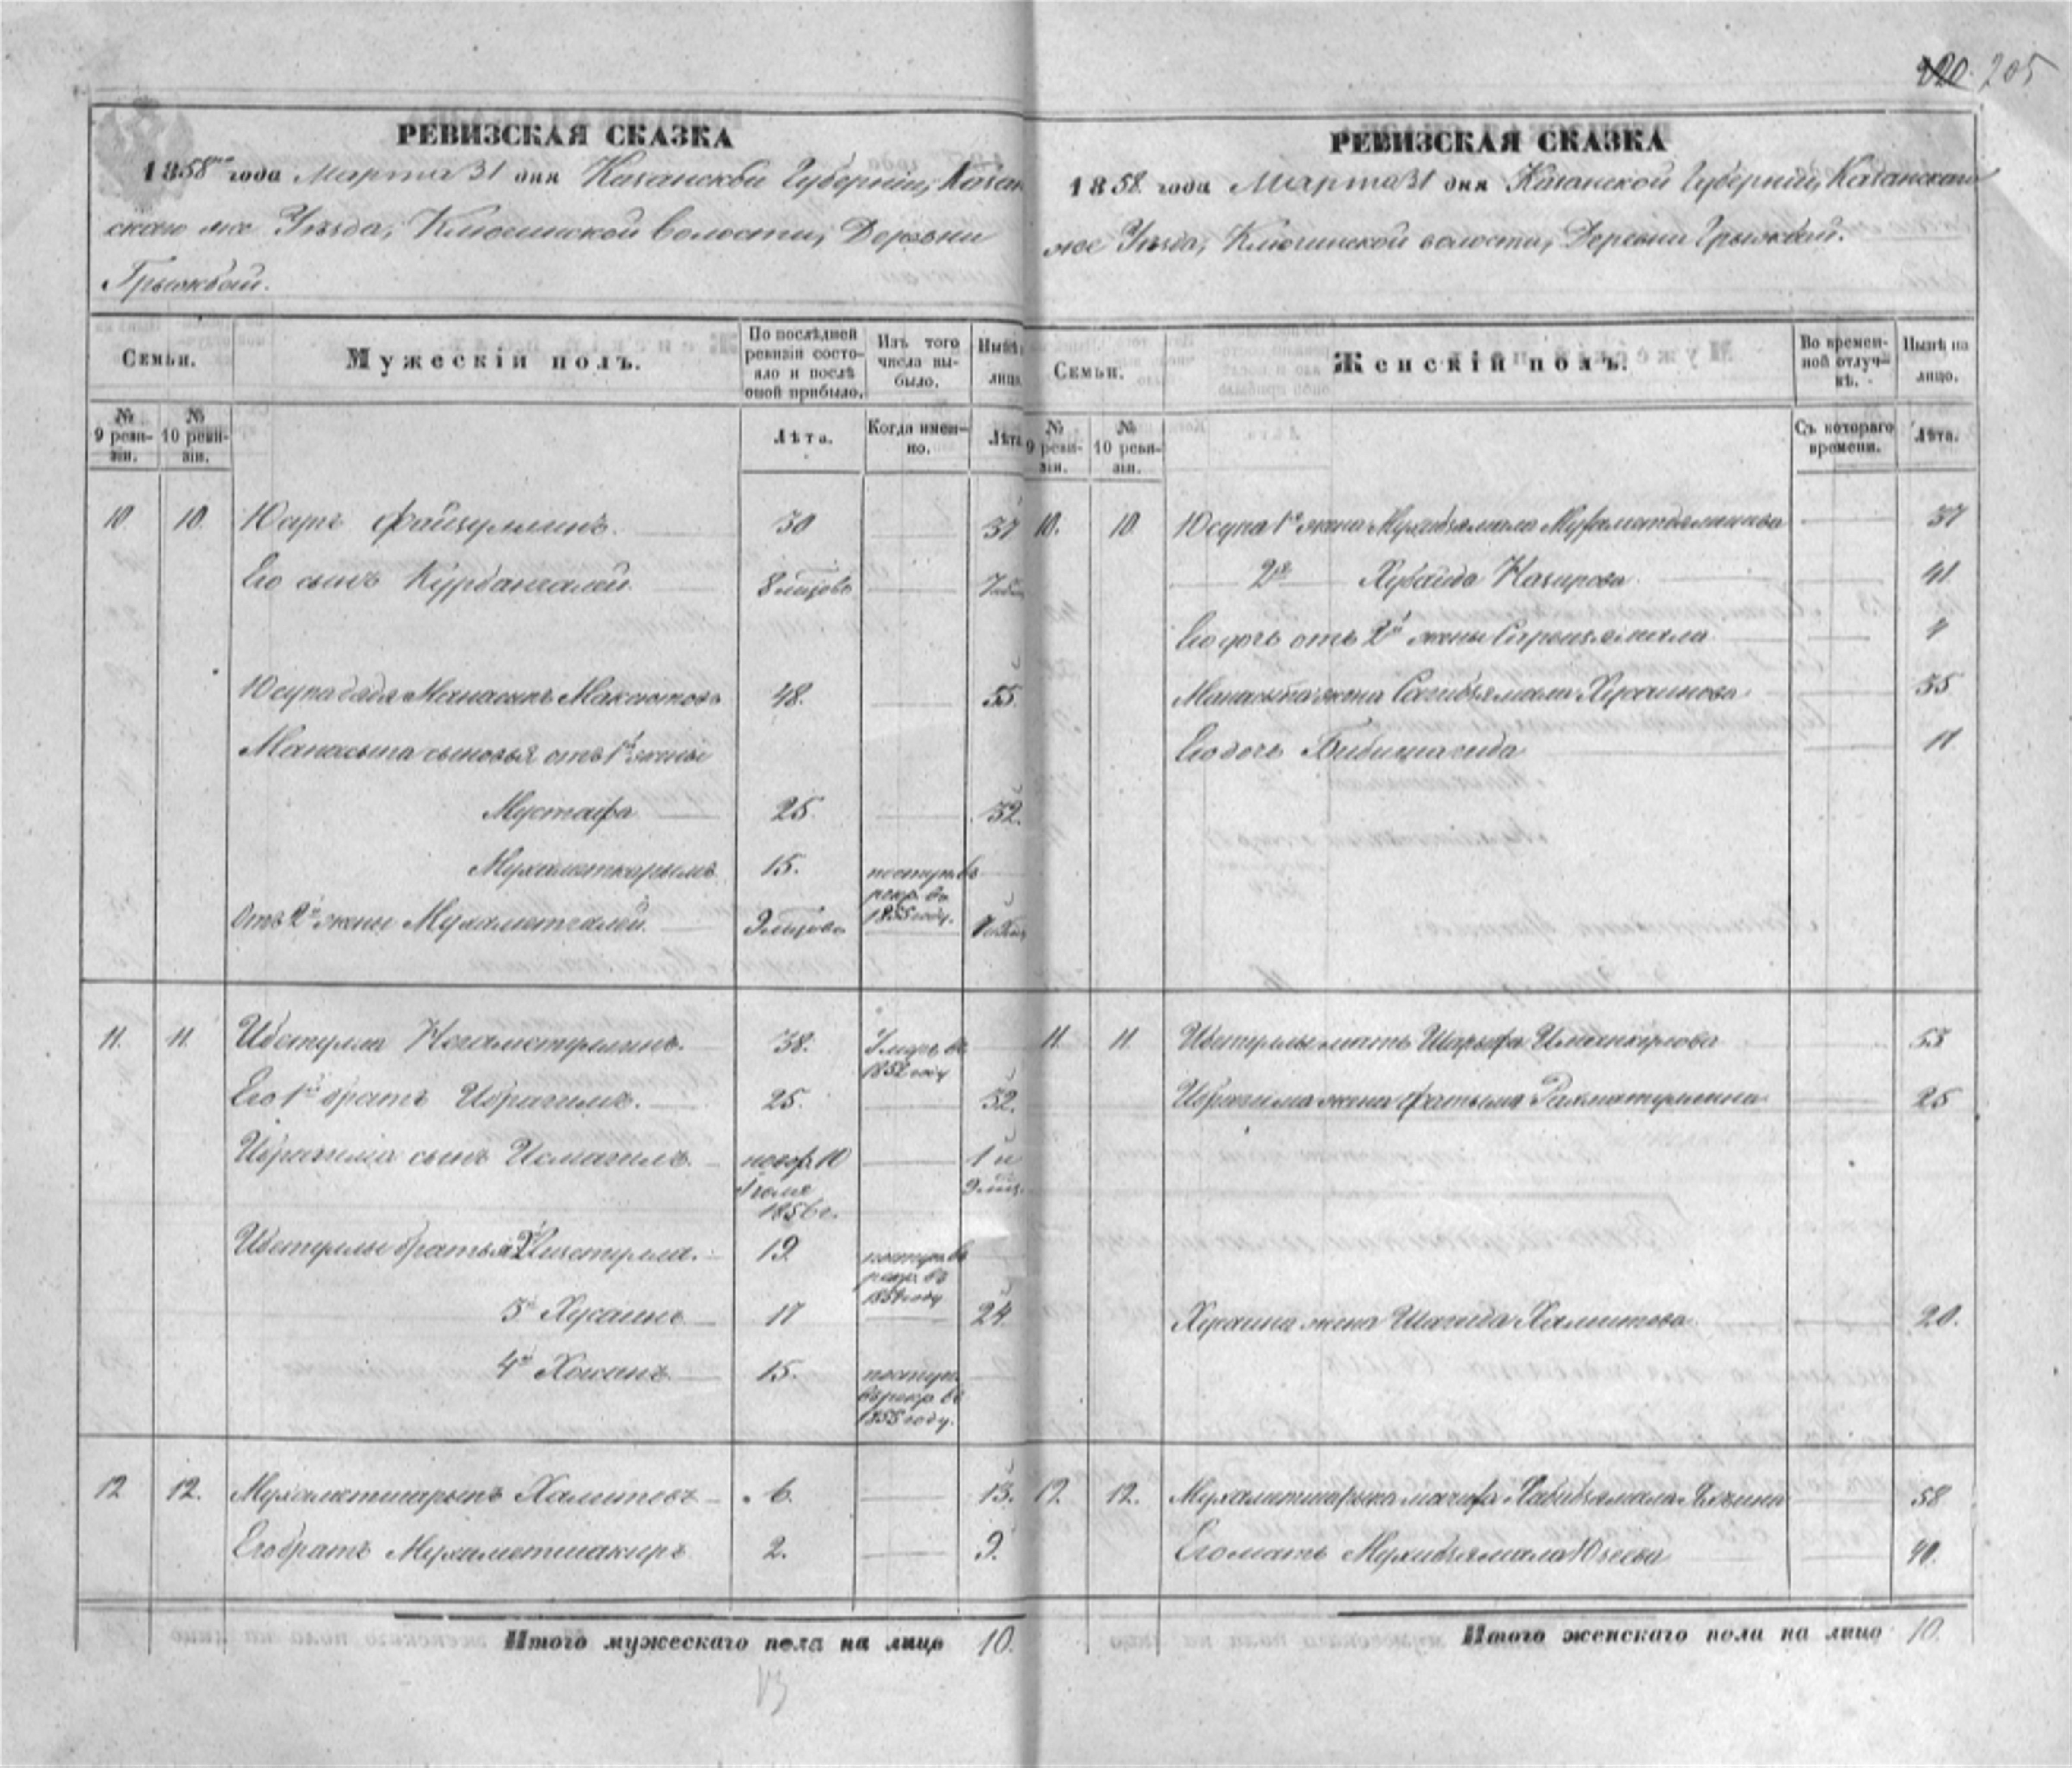 220. 205
РЕВИЗСКАЯ СКАЗКА
1858го года Марта 31 дня Казанской Губерніи, Казан
скаго же Уѣзда, Ключинской волости, Деревни
РЕВИЗСКАЯ СКАЗКА
1858 года Марта 31 дня Казанской Губерніи, Казанскаго
же Уѣзда, Ключинской волости, Деревни
Семьи.
Мужескій полъ.
По послѣдней ревизіи состояло и послѣ оной прибыло.
Изъ того числа выбыло.
Нынѣ лицо
№ 9 ревизіи.
№ 10 ревизіи.
Лѣта.
Когда именно.
Лѣта
10 10. Юсупъ Файзуллинъ. 30 37
Его сынъ Курбангалей. 8 мѣсовъ
Юсупа дядя Манасыпъ Максютовъ 48. 55.
Манасыпа сыновья отъ 1й жены
Мустафа 25. 32.
Мухаметкарымъ 15. поступ. въ рекр. въ 1855 году.
Отъ 2й жены Мухаметгалей. 9 мѣсовъ
11. 11. Ибетулла Негаметуллинъ. 38. Умеръ въ 1852 году
Его 1й братъ Ибрагимъ. 25. 32.
Ибрагима сынъ Исмагилъ. новор. 10 Іюля 1856 г. 1 и 9 мѣс.
Ибетуллы братья 2й 19 поступ. въ рекр. въ 1854 году
3й Хусаинъ 17 24
4й Хасанъ 15. поступ. въ рекр. въ 1855 году.
12 12. Мухаметшарыпъ Халитовъ 6. 13.
Его братъ Мухаметшакиръ 2. 9.
Итого мужескаго пола на лицо 10.
13
Семьи.
Женскій полъ.
Во временной отлучкѣ.
Нынѣ на лицо.
№ 9 ревизіи.
№ 10 ревизіи.
Съ котораго времени.
Лѣта.
10. 10 Юсупа 1я жена Мухибзямала 37
2я Хубайда Назирова 41
Его дочь отъ 2й жены 4
Манасыпа жена Сагибзямала Хусаинова 35
Его дочь Бибишагида 11
11 11 Ибетуллы мать Шарыфа 53
Ибрагима жена Фатыма Рахматуллина 25
Хусаина жена Шагида Халитова 20.
12 12. Мухаметшарыпа Хабибзямала 58
Его мать Мухибзямала Юзеева 40.
Итого женскаго пола на лицо 10.